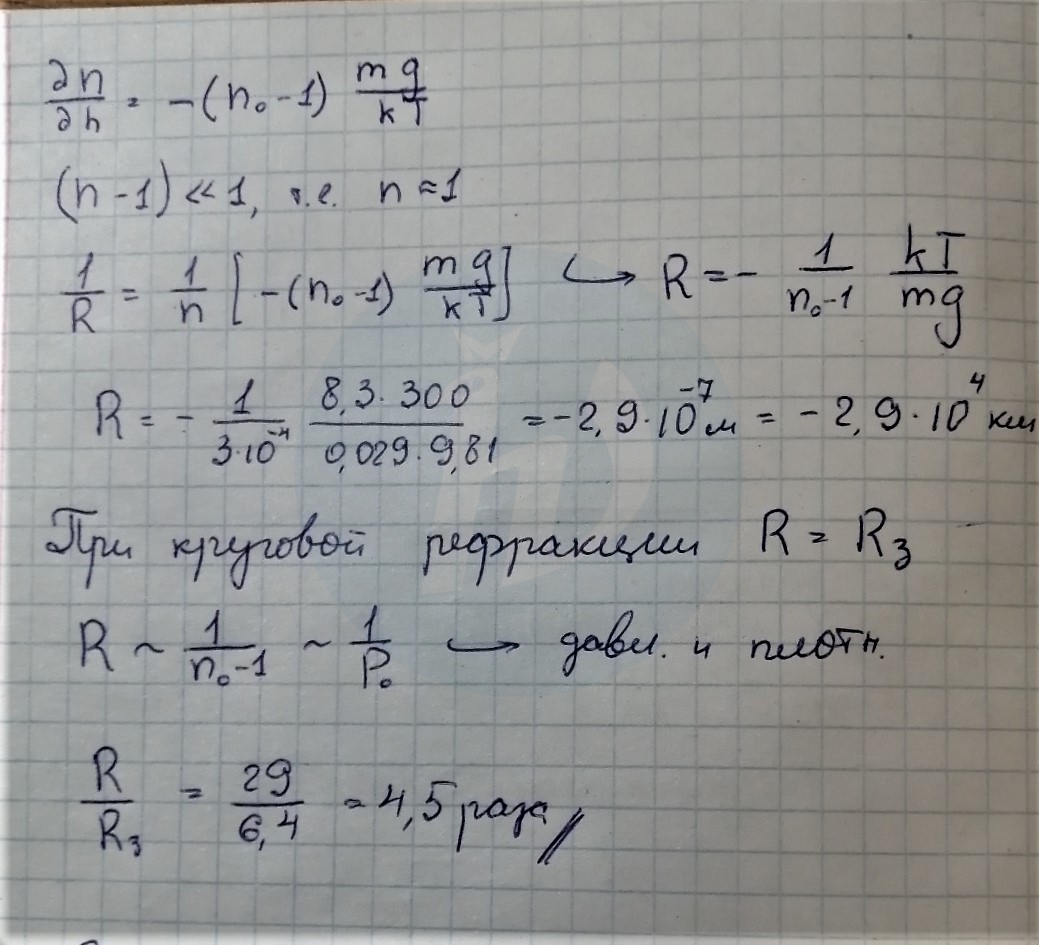 ∂n/∂h = -(n₀-1) mg/kT
(n-1) ≪ 1, т.е. n ≈ 1
1/R = 1/n [-(n₀-1) mg/kT] ↪ R = - 1/(n₀-1) kT/mg
R = - 1/(3·10⁻⁴) (8,3·300)/(0,029·9,81) = -2,9·10⁻⁷ м = -2,9·10⁴ км
При круговой рефракции R = R₃
R ~ 1/(n₀-1) ~ 1/P₀ ↪ давл. и плотн.
R/R₃ = 29/6,4 = 4,5 раза //